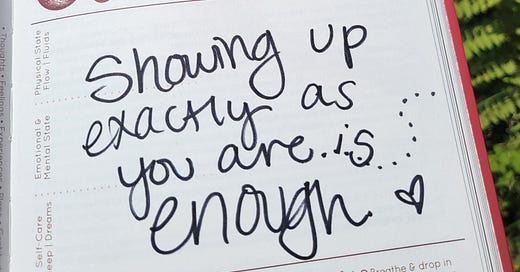 Showing up
exactly as
you are is
enough.
Physical State
Flow | Fluids
Emotional &
Mental State
Self-Care
Thoughts • Feelings • Experiences
Breathe & drop in